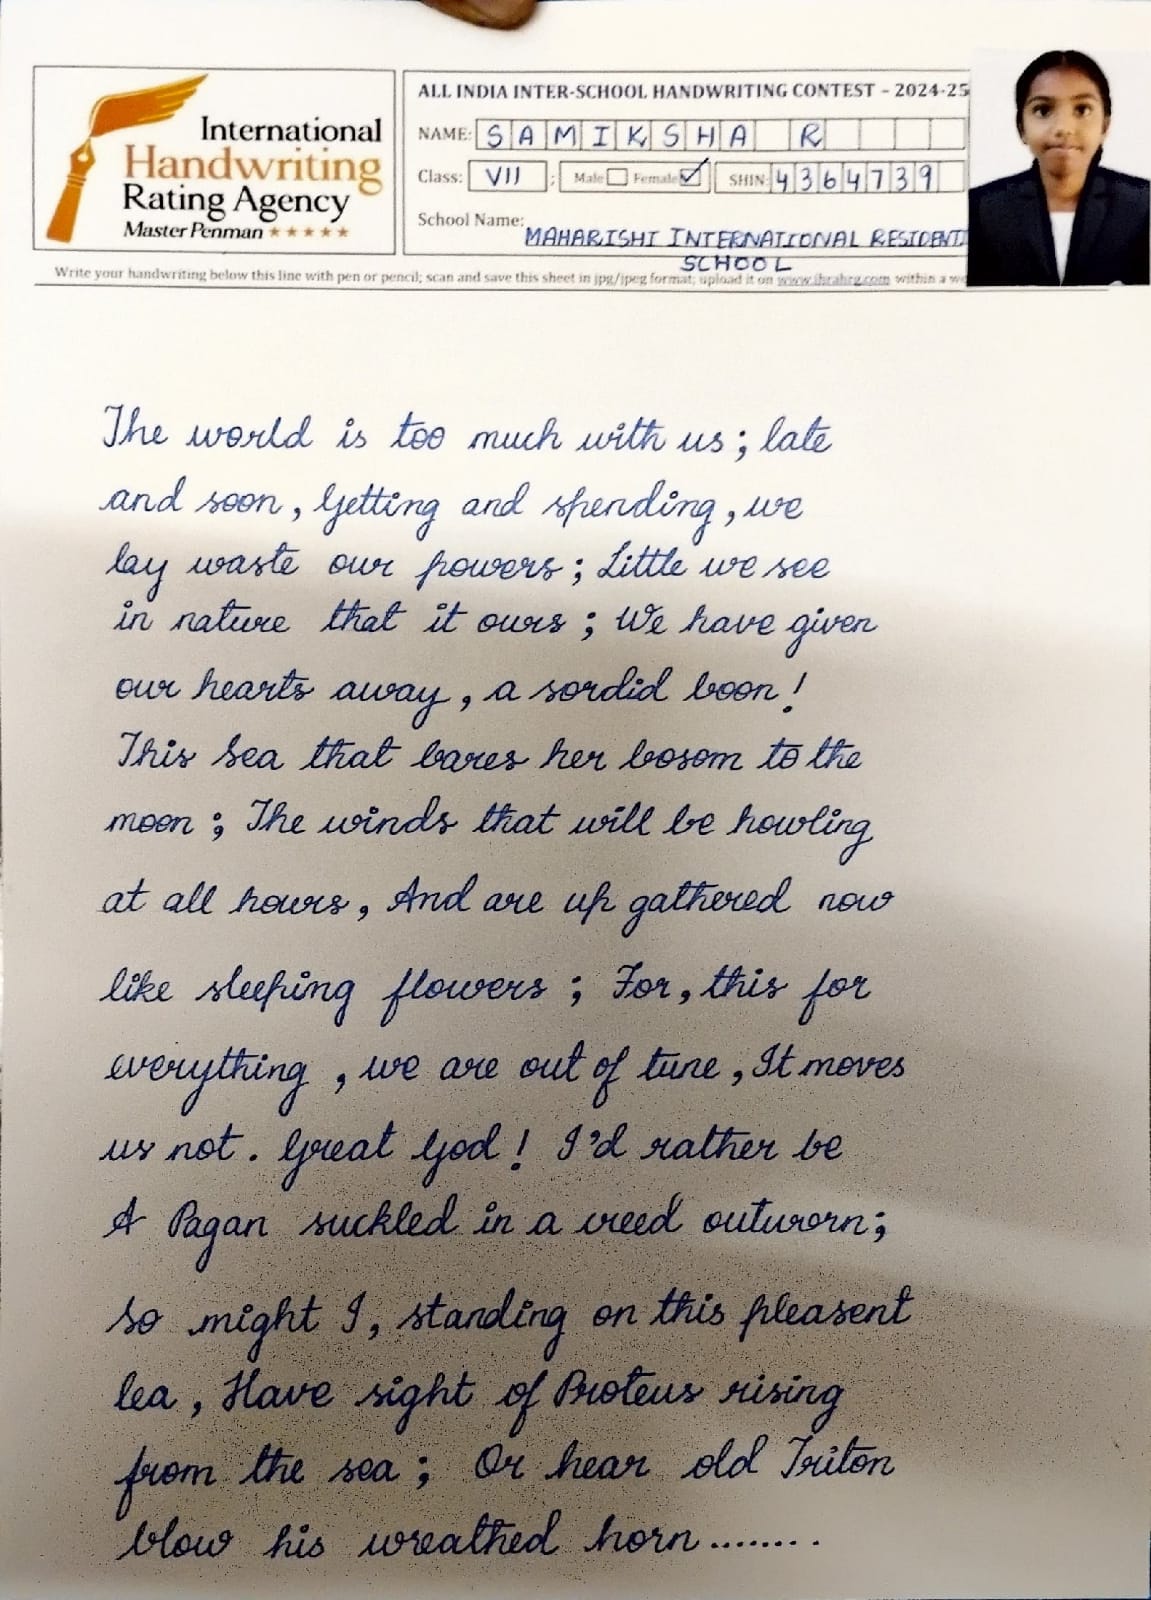 International
Handwriting
Rating Agency
Master Penman
ALL INDIA INTER-SCHOOL HANDWRITING CONTEST - 2024-25
NAME: SAMIKSHA R
Class: VII ; Male Female SHIN: 4364739
School Name: MAHARISHI INTERNATIONAL RESIDENTI
SCHOOL
Write your handwriting below this line with pen or pencil; scan and save this sheet in jpg/jpeg format; upload it on www.ihrahrg.com within a we
The world is too much with us ; late
and soon , Getting and spending , we
lay waste our powers ; Little we see
in nature that it ours ; We have given
our hearts away , a sordid boon !
This Sea that bares her bosom to the
moon ; The winds that will be howling
at all hours , And are up gathered now
like sleeping flowers ; For , this for
everything , we are out of tune , It moves
us not . Great God ! I'd rather be
A Pagan suckled in a creed outworn ;
So might I , standing on this pleasent
lea , Have sight of Proteus rising
from the sea ; Or hear old Triton
blow his wreathed horn ........